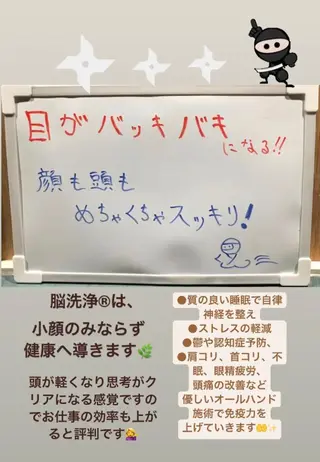 目がバッキバキ
になる!!
顔も頭も
めちゃくちゃスッキリ!
脳洗浄®は、
小顔のみならず
健康へ導きます🌿
頭が軽くなり思考がク
リアになる感覚ですの
でお仕事の効率も上が
ると評判です🙋‍♀️
●質の良い睡眠で自律
神経を整え
●ストレスの軽減
●鬱や認知症予防、
●肩コリ、首コリ、不
眠、眼精疲労、
頭痛の改善など
優しいオールハンド
施術で免疫力を
上げていきます🤲✨